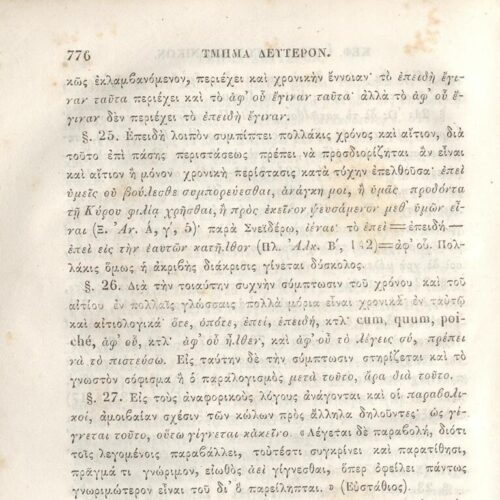 776 ΤΜΗΜΑ ΔΕΥΤΕΡΟΝ.
κῶς ἐκλαμβανόμενον, περιέχει καὶ χρονικὴν ἔννοιαν· τὸ ἐπειδὴ ἔγι-
ναν ταῦτα περιέχει καὶ τὸ ἀφ' οὗ ἔγιναν ταῦτα· ἀλλὰ τὸ ἀφ' οὗ ἔ-
γιναν δὲν περιέχει τὸ ἐπειδὴ ἔγιναν.
§. 25. Ἐπειδὴ λοιπὸν συμπίπτει πολλάκις χρόνος καὶ αἴτιον, διὰ
τοῦτο ἐπὶ πάσης περιστάσεως πρέπει νὰ προσδιορίζηται ἂν εἶναι
καὶ αἴτιον ἢ μόνον χρονικὴ περίστασις κατὰ τύχην ἐπελθοῦσα· ἐπεὶ
ὑμεῖς οὐ βούλεσθε συμπορεύεσθαι, ἀνάγκη μοι, ἢ ὑμᾶς προδόντα
τῇ Κύρου φιλίᾳ χρῆσθαι, ἢ πρὸς ἐκεῖνον ψευσάμενον μεθ' ὑμῶν εἶ-
ναι (Ξ. Ἀν. Α, γ', 5)· παρὰ Σνεϊδέρῳ, ἰέναι· τὸ ἐπεὶ=ἐπειδή.—
ἐπεὶ εἰς τὴν ἑαυτῶν κατῆλθον (Πλ. Ἀλκ. Β', 142)=ἀφ' οὗ. Πολ-
λάκις ὅμως ἡ ἀκριβὴς διάκρισις γίνεται δύσκολος.
§. 26. Διὰ τὴν τοιαύτην συχνὴν σύμπτωσιν τοῦ χρόνου καὶ τοῦ
αἰτίου ἐν πολλαῖς γλώσσαις πολλὰ μόρια εἶναι χρονικὰ ἐν ταὐτῷ
καὶ αἰτιολογικά· ὅτε, ὁπότε, ἐπεί, ἐπειδή, κτλ· cum, quum, poi-
ché, ἀφ' οὗ, κτλ· ἀφ' οὗ ἦλθεν, καὶ ἀφ' οὗ τὸ λέγεις σύ, πρέπει
νὰ τὸ πιστεύσω. Εἰς ταύτην δὲ τὴν σύμπτωσιν στηρίζεται καὶ τὸ
γνωστὸν σόφισμα ἢ ὁ παραλογισμὸς μετὰ τοῦτο, ἄρα διὰ τοῦτο.
§. 27. Εἰς τοὺς ἀναφορικοὺς λόγους ἀνάγονται καὶ οἱ παραβολι-
κοί, ἀμοιβαίαν σχέσιν τῶν κώλων πρὸς ἄλληλα δηλοῦντες· ὡς γί-
γνεται τοῦτο, οὕτω γίγνεται κἀκεῖνο. «Λέγεται δὲ παραβολή, διότι
τοῖς λεγομένοις παραβάλλει, τουτέστι συγκρίνει καὶ παρατίθησι,
πρᾶγμά τι γνώριμον, εἰωθὸς ἀεὶ γίγνεσθαι, ὅπερ ὀφείλει πάντως
γνωριμώτερον εἶναι τοῦ δι' ὃ παρείληπται.» (Εὐστάθιος).